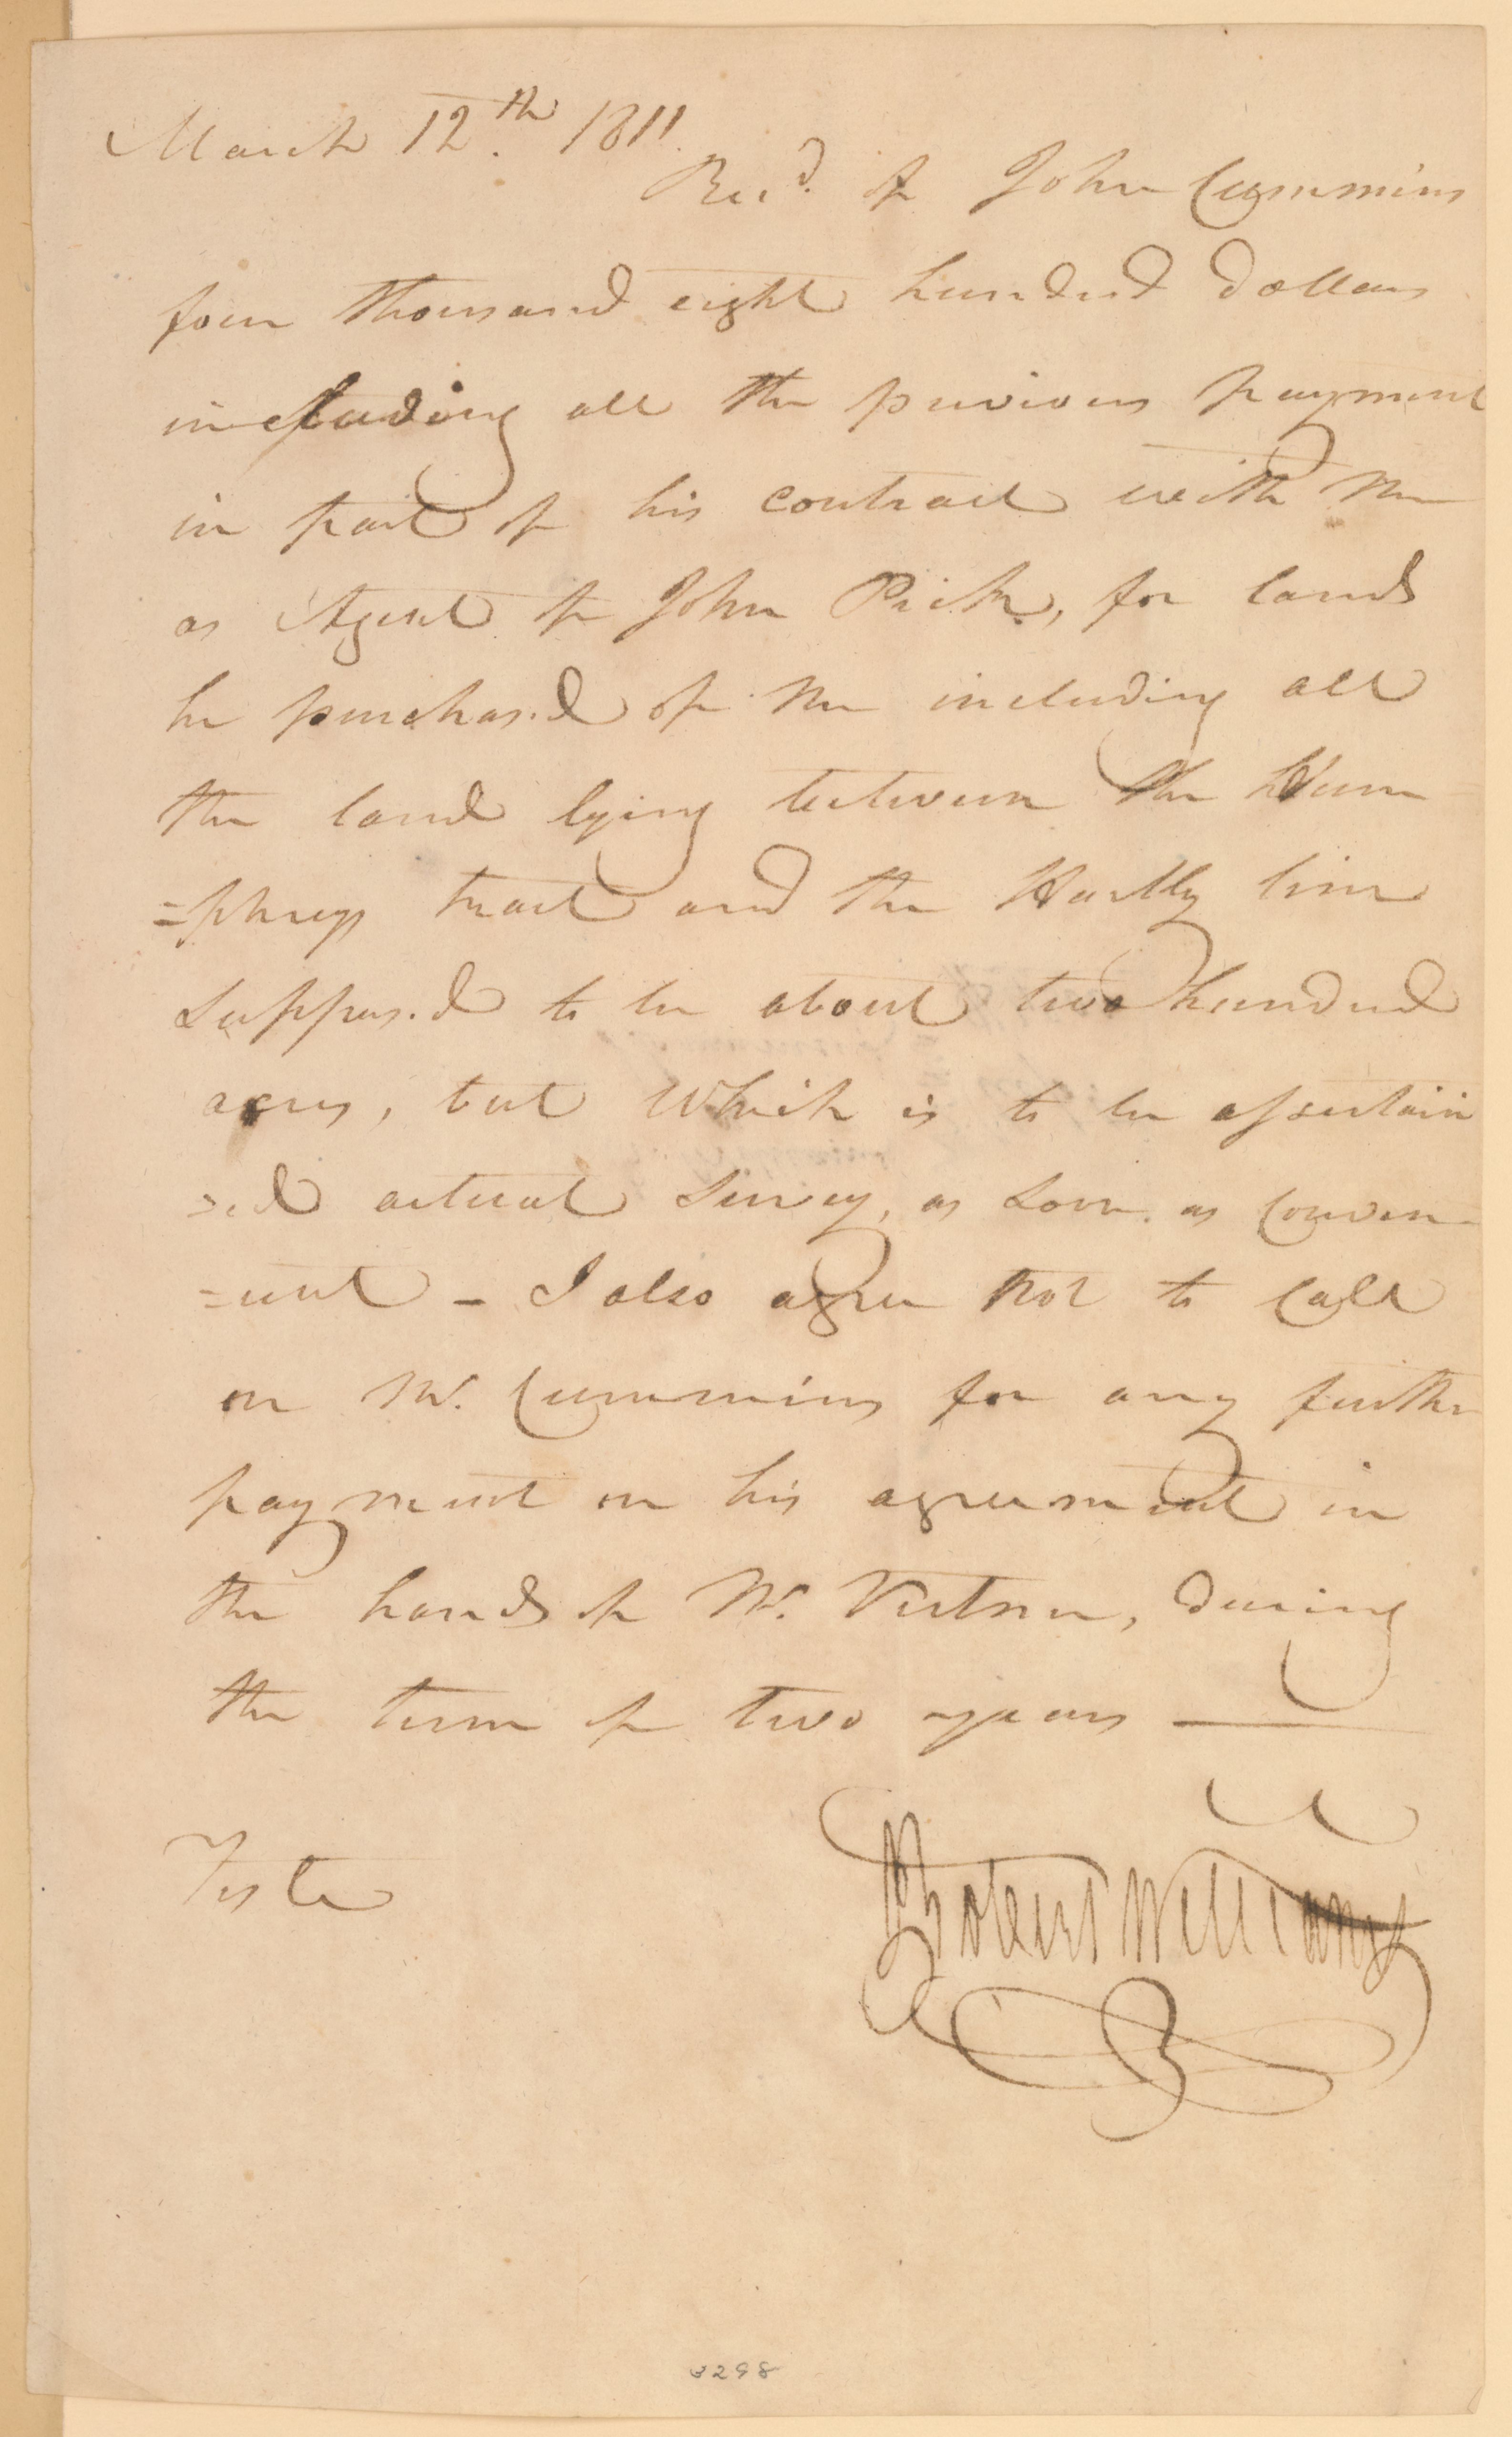 March 12.th 1811.
Recd. of John Cummins
four thousand eight hundred dollars
including all the previous payment
in part of his contract with me
as Agent of John Peck, for lands
he purchased of me including all
the land lying between the Hum
=phreys tract and the Hartly line
supposed to be about two hundred
acres, but which is to be assertain
=ed actual survey, as soon as conven
=ient - I also agree not to call
on Mr. Cummins for any further
payment on his agreement in
the hands of Mr. Vertner, during
the term of two years
Robert Williams
Teste
3298